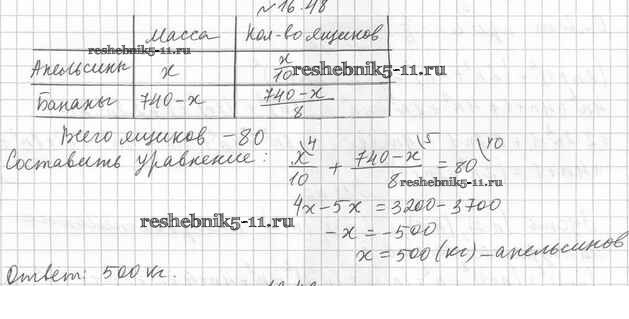 №16.48
Масса Кол-во ящиков
reshebnik5-11.ru
Апельсины x x/10
reshebnik5-11.ru
Бананы 740-x (740-x)/8
Всего ящиков - 80
Составить уравнение: x/10 \4 + (740-x)/8 \5 = 80 \40
reshebnik5-11.ru
4x-5x = 3200-3700
reshebnik5-11.ru
-x = -500
x = 500 (кг) - апельсинов
Ответ: 500 кг.